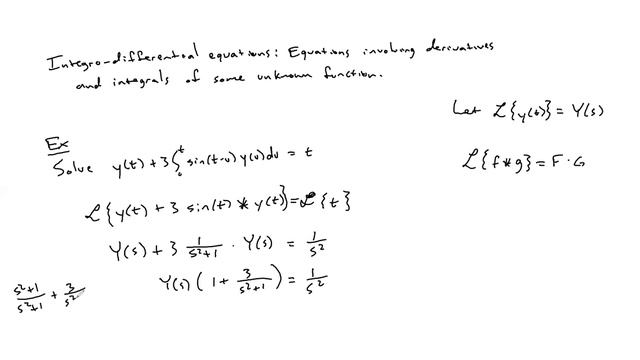 Integro-differential equations: Equations involving derivatives
and integrals of some unknown function.
Let ℒ{y(t)} = Y(s)
Ex
Solve y(t) + 3∫₀ᵗ sin(t-v) y(v) dv = t
ℒ{f * g} = F · G
ℒ{y(t) + 3 sin(t) * y(t)} = ℒ{t}
Y(s) + 3 1/(s²+1) · Y(s) = 1/s²
Y(s) (1 + 3/(s²+1)) = 1/s²
(s²+1)/(s²+1) + 3/s²